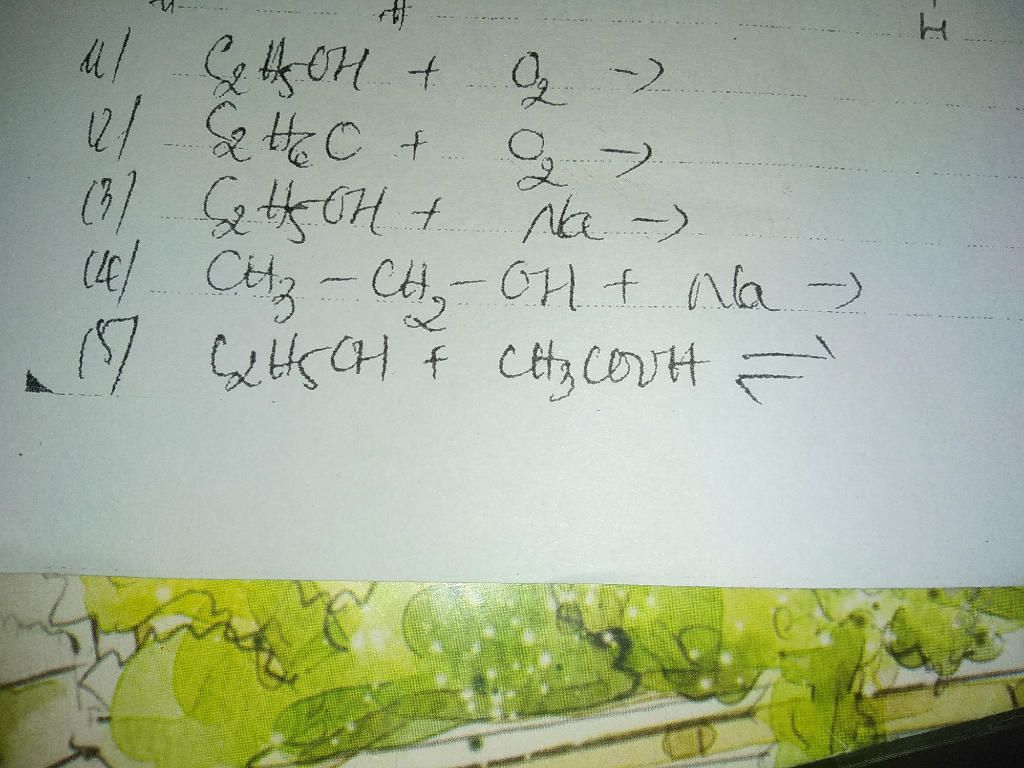 H
(1) C₂H₅OH + O₂ →
(2) C₂H₆O + O₂ →
(3) C₂H₅OH + Na →
(4) CH₃ – CH₂ – OH + Na →
(5) C₂H₅OH + CH₃COOH ⇌